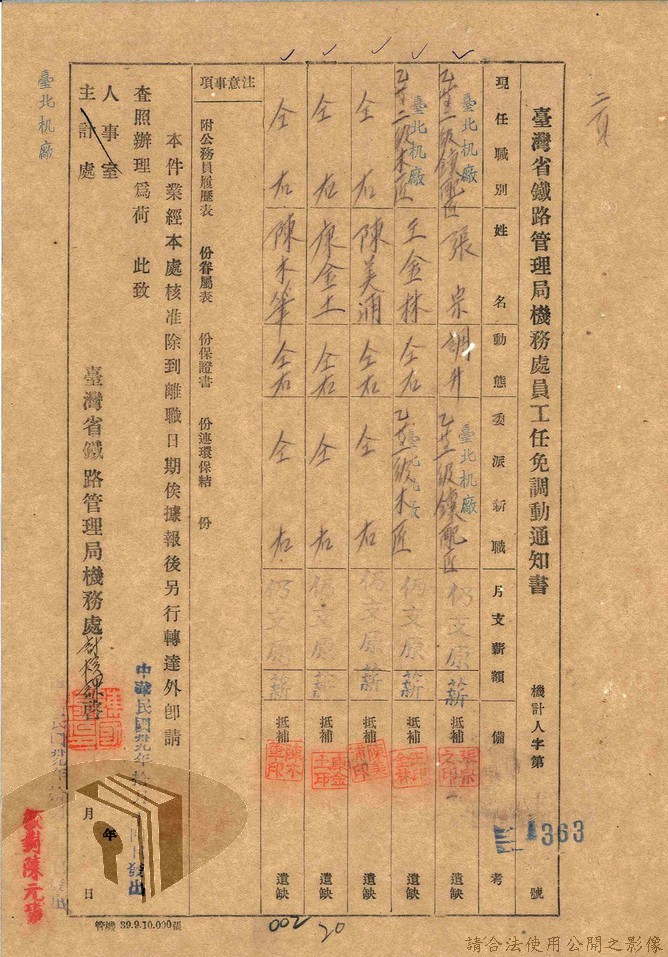 臺灣省鐵路管理局機務處員工任免調動通知書
機計人字第 1363 號
現任職別 姓名 動態 委派新職 月支薪額 備考
臺北机廠 張宗 調升 臺北机廠 仍支原薪 抵補 遺缺
臺北机廠 王金林 仝右 仍支原薪 抵補 遺缺
仝右 陳美 仝右 仝右 仍支原薪 抵補 遺缺
仝右 康金土 仝右 仝右 仍支原薪 抵補 遺缺
仝右 陳木 仝右 仝右 仍支原薪 抵補 遺缺
注意事項
附公務員履歷表 份眷屬表 份保證書 份連環保結 份
本件業經本處核准除到離職日期俟據報後另行轉達外卽請
查照辦理爲荷 此致
人事室
主計處
臺北机廠
臺灣省鐵路管理局機務處 啓
中華民國卅九年拾
年 月 日
發出
陳元
管機 39.9.10.000張
002
20
請合法使用公開之影像